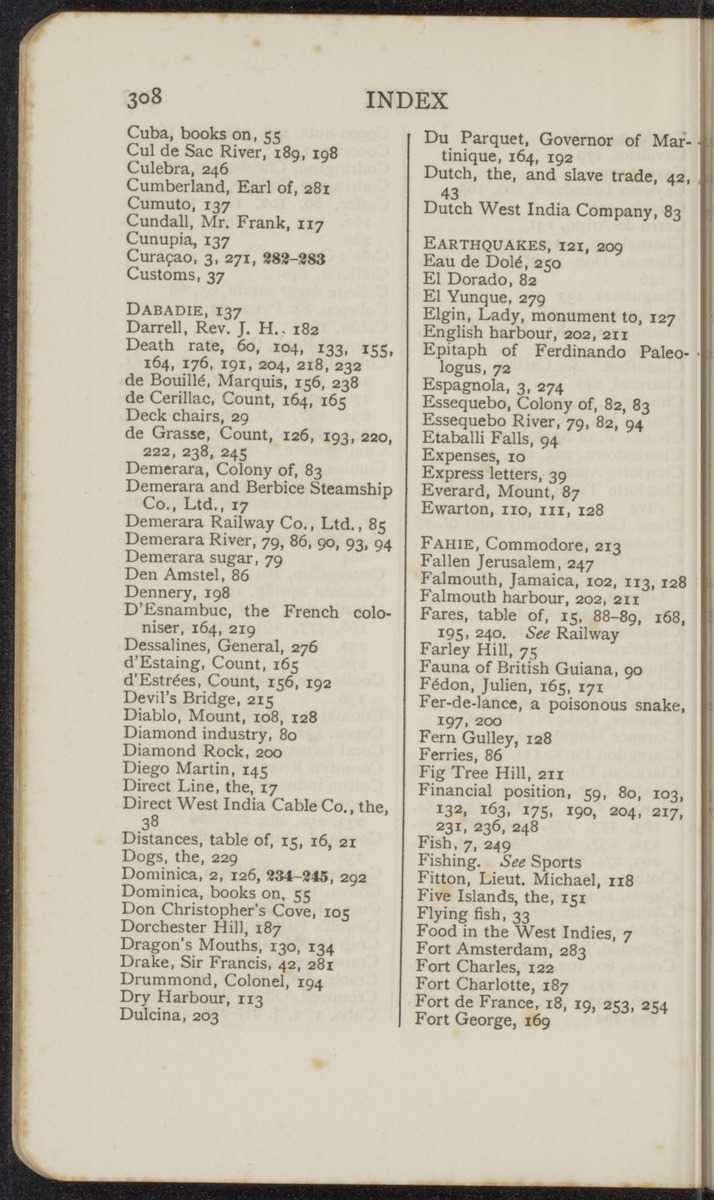 308
INDEX
Cuba, books on, 55
Cul de Sac River, 189, 198
Culebra, 246
Cumberland, Earl of, 281
Cumuto, 137
Cundall, Mr. Frank, 117
Cunupia, 137
Curaçao, 3, 271, 282–283
Customs, 37
DABADIE, 137
Darrell, Rev. J. H., 182
Death rate, 60, 104, 133, 155,
164, 176, 191, 204, 218, 232
de Bouillé, Marquis, 156, 238
de Cerillac, Count, 164, 165
Deck chairs, 29
de Grasse, Count, 126, 193, 220,
222, 238, 245
Demerara, Colony of, 83
Demerara and Berbice Steamship
Co., Ltd., 17
Demerara Railway Co., Ltd., 85
Demerara River, 79, 86, 90, 93, 94
Demerara sugar, 79
Den Amstel, 86
Dennery, 198
D'Esnambuc, the French colo-
niser, 164, 219
Dessalines, General, 276
d'Estaing, Count, 165
d'Estrées, Count, 156, 192
Devil's Bridge, 215
Diablo, Mount, 108, 128
Diamond industry, 80
Diamond Rock, 200
Diego Martin, 145
Direct Line, the, 17
Direct West India Cable Co., the,
38
Distances, table of, 15, 16, 21
Dogs, the, 229
Dominica, 2, 126, 234–245, 292
Dominica, books on, 55
Don Christopher's Cove, 105
Dorchester Hill, 187
Dragon's Mouths, 130, 134
Drake, Sir Francis, 42, 281
Drummond, Colonel, 194
Dry Harbour, 113
Dulcina, 203
Du Parquet, Governor of Mar-
tinique, 164, 192
Dutch, the, and slave trade, 42,
43
Dutch West India Company, 83
EARTHQUAKES, 121, 209
Eau de Dolé, 250
El Dorado, 82
El Yunque, 279
Elgin, Lady, monument to, 127
English harbour, 202, 211
Epitaph of Ferdinando Paleo-
logus, 72
Espagnola, 3, 274
Essequebo, Colony of, 82, 83
Essequebo River, 79, 82, 94
Etaballi Falls, 94
Expenses, 10
Express letters, 39
Everard, Mount, 87
Ewarton, 110, 111, 128
FAHIE, Commodore, 213
Fallen Jerusalem, 247
Falmouth, Jamaica, 102, 113, 128
Falmouth harbour, 202, 211
Fares, table of, 15, 88–89, 168,
195, 240. See Railway
Farley Hill, 75
Fauna of British Guiana, 90
Fédon, Julien, 165, 171
Fer-de-lance, a poisonous snake,
197, 200
Fern Gulley, 128
Ferries, 86
Fig Tree Hill, 211
Financial position, 59, 80, 103,
132, 163, 175, 190, 204, 217,
231, 236, 248
Fish, 7, 249
Fishing. See Sports
Fitton, Lieut. Michael, 118
Five Islands, the, 151
Flying fish, 33
Food in the West Indies, 7
Fort Amsterdam, 283
Fort Charles, 122
Fort Charlotte, 187
Fort de France, 18, 19, 253, 254
Fort George, 169